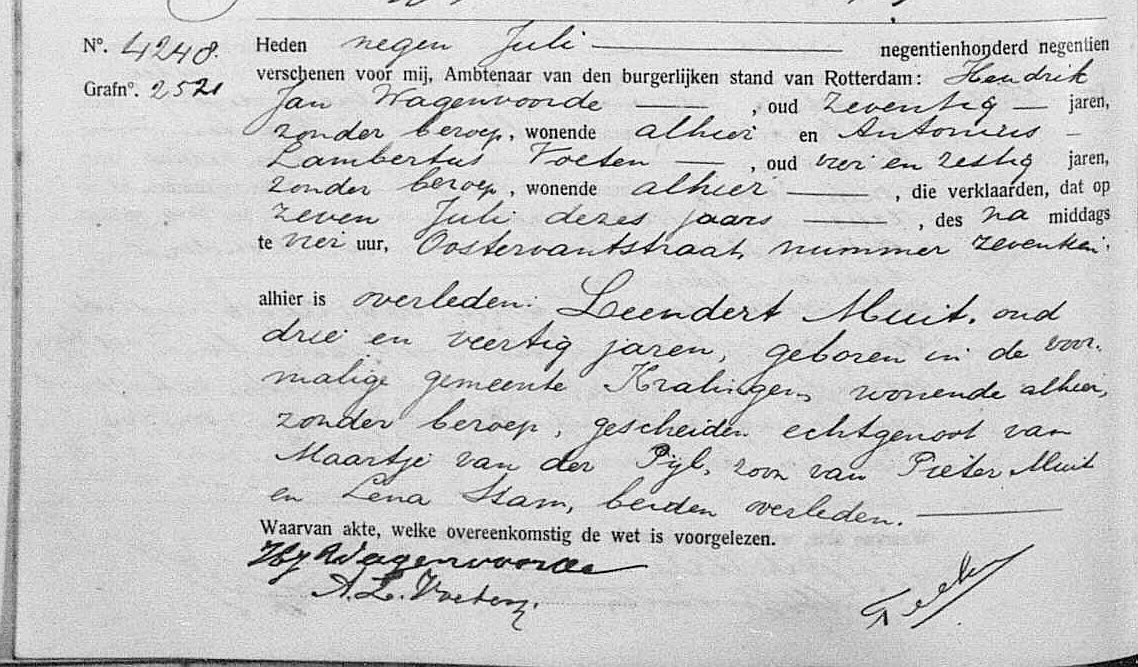 Nº. 4248. Heden negen Juli negentienhonderd negentien
Grafnº. 2521 verschenen voor mij, Ambtenaar van den burgerlijken stand van Rotterdam: Hendrik
Jan Wagenvoorde, oud zeventig jaren,
zonder beroep, wonende alhier en Antonius
Lambertus Voeten, oud vier en zestig jaren,
zonder beroep, wonende alhier, die verklaarden, dat op
zeven Juli dezes jaars, des na middags
te vier uur, Oostervantstraat, nummer zeventien.
alhier is overleden: Leendert Muit, oud
drie en veertig jaren, geboren in de voor-
malige gemeente Kralingen, wonende alhier,
zonder beroep, gescheiden echtgenoot van
Maartje van der Pijl, zoon van Pieter Muit
en Lena Stam, beiden overleden.
Waarvan akte, welke overeenkomstig de wet is voorgelezen.
HJ Wagenvoorde
A. L. Voeten.